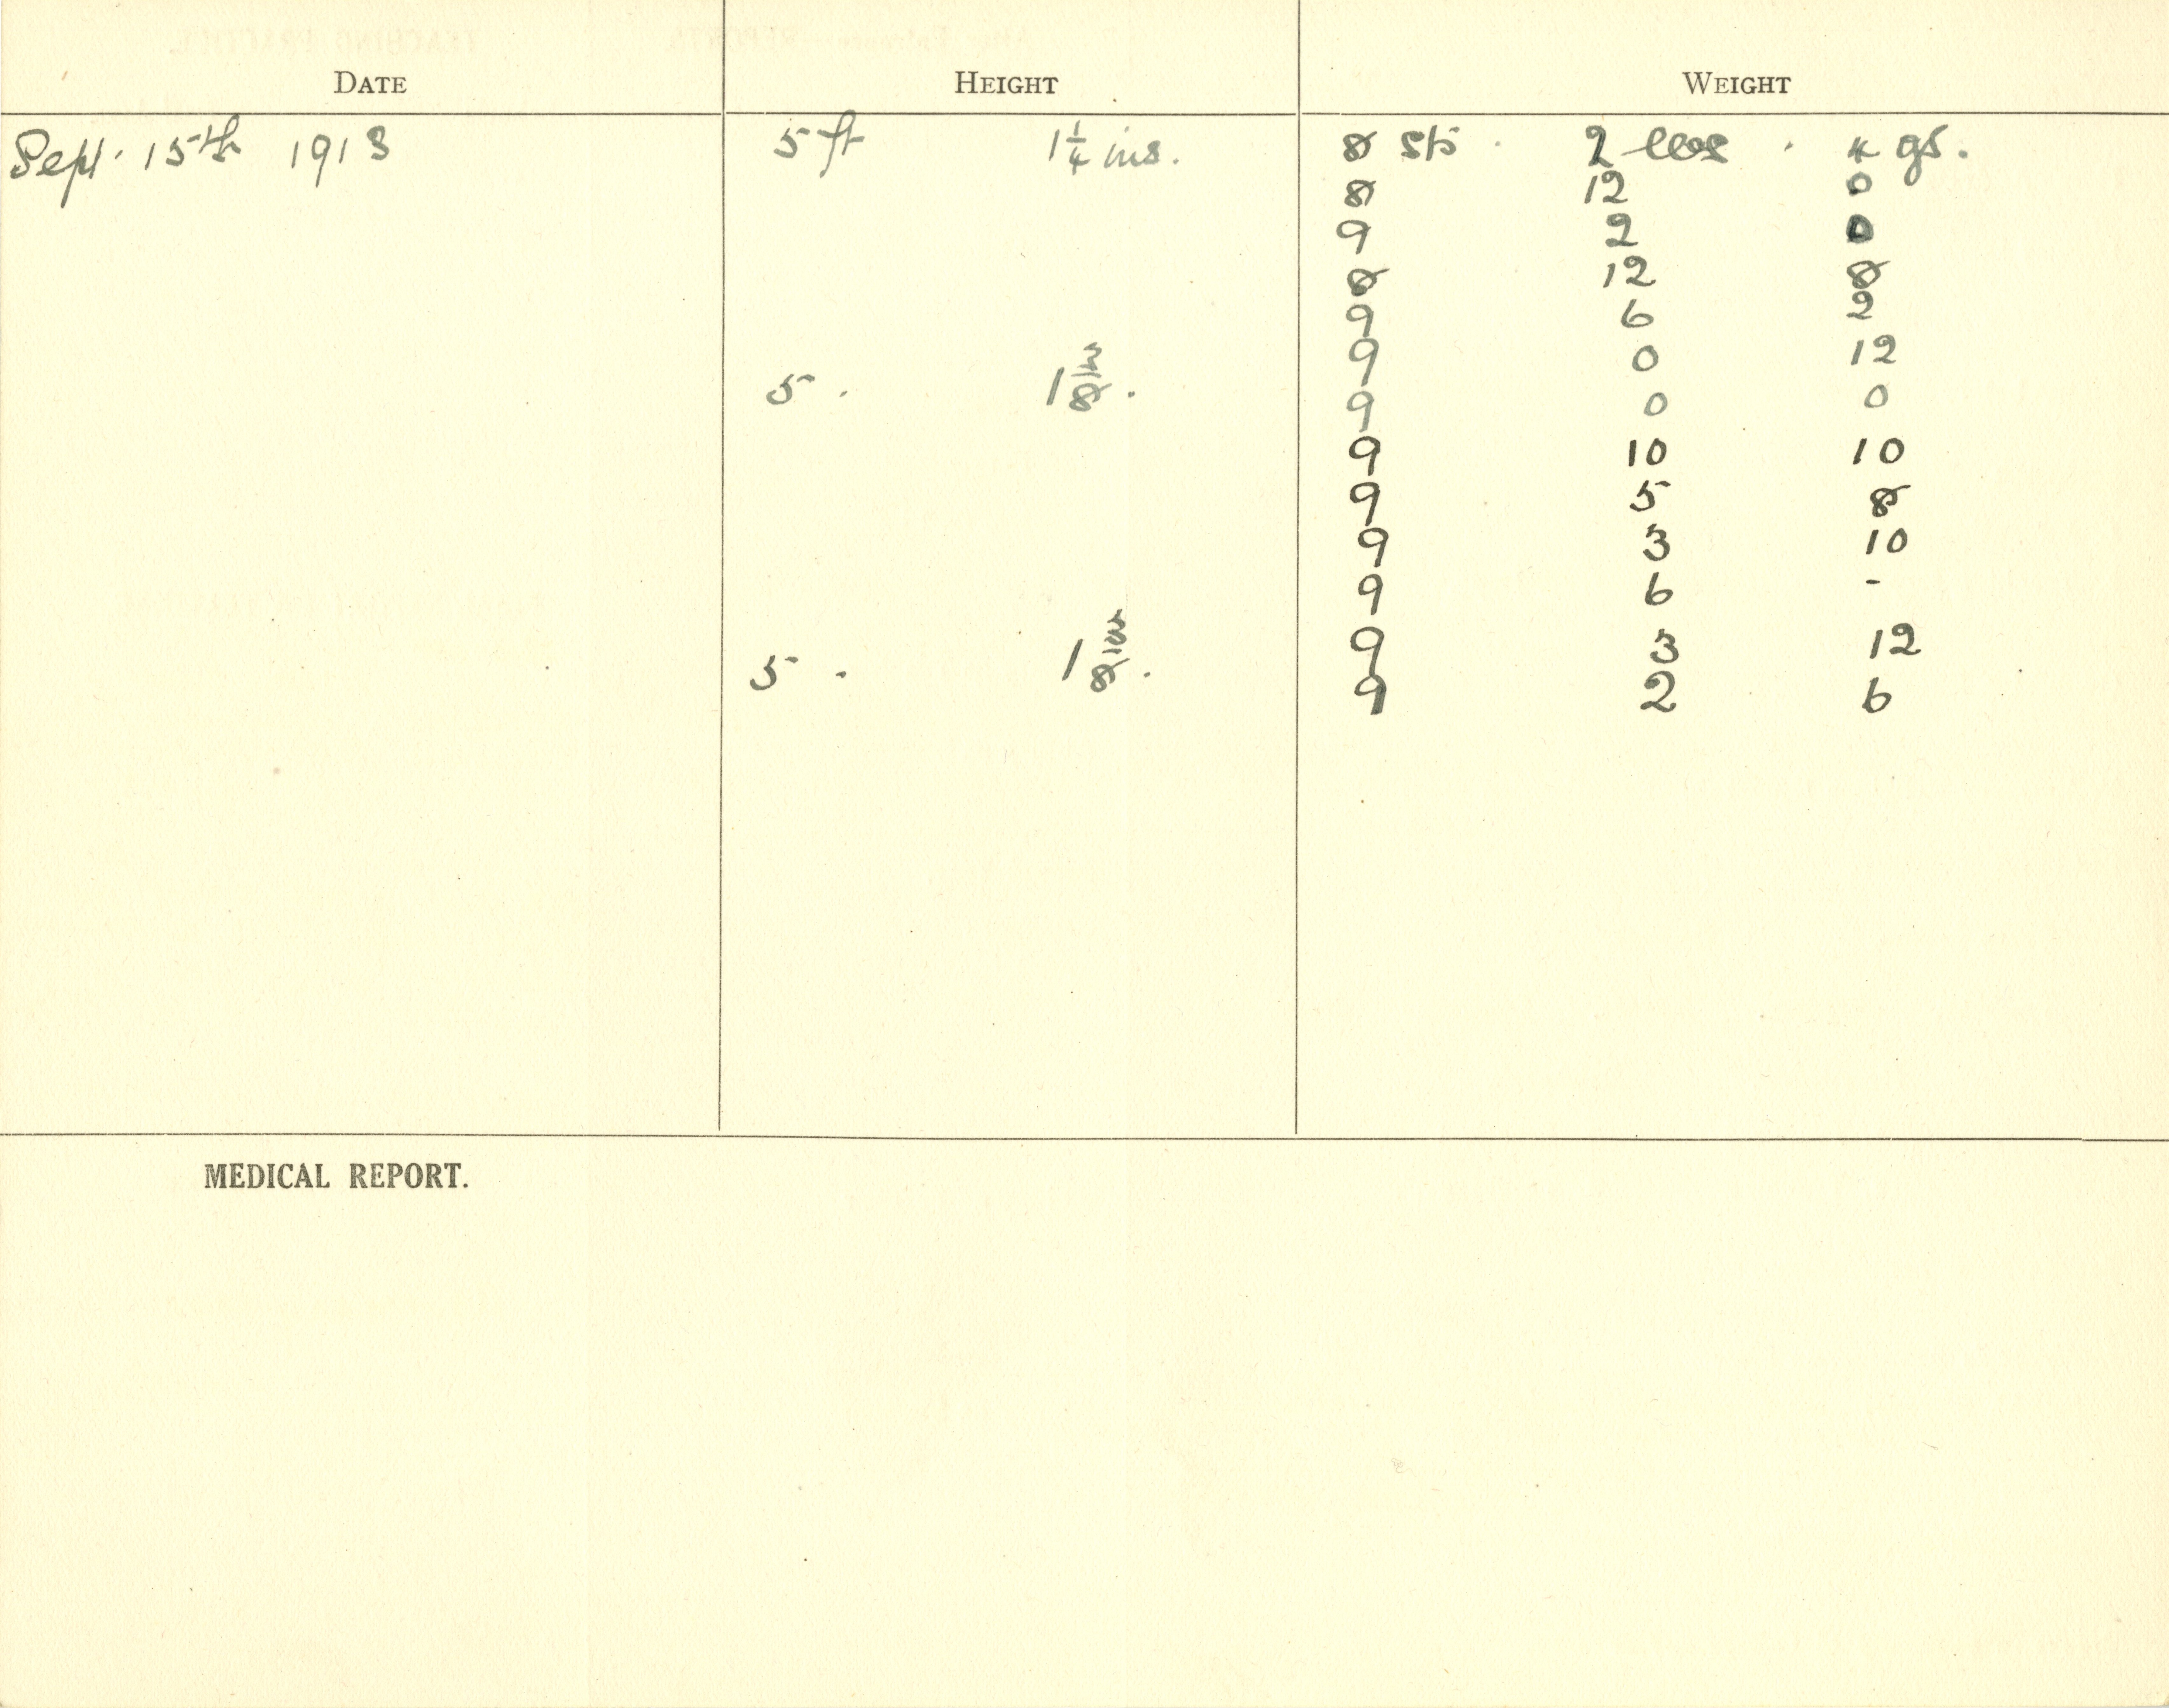 DATE HEIGHT WEIGHT
Sept. 15th 1913 5 ft 1 1/4 ins. 8 sts. 2 lbs. 4 gs.
8 12 0
9 2 0
8 12 8
9 6 2
9 0 12
5. 1 3/8. 9 0 0
9 10 10
9 5 8
9 3 10
9 6 -
9 3 12
5. 1 3/8. 9 2 6
MEDICAL REPORT.